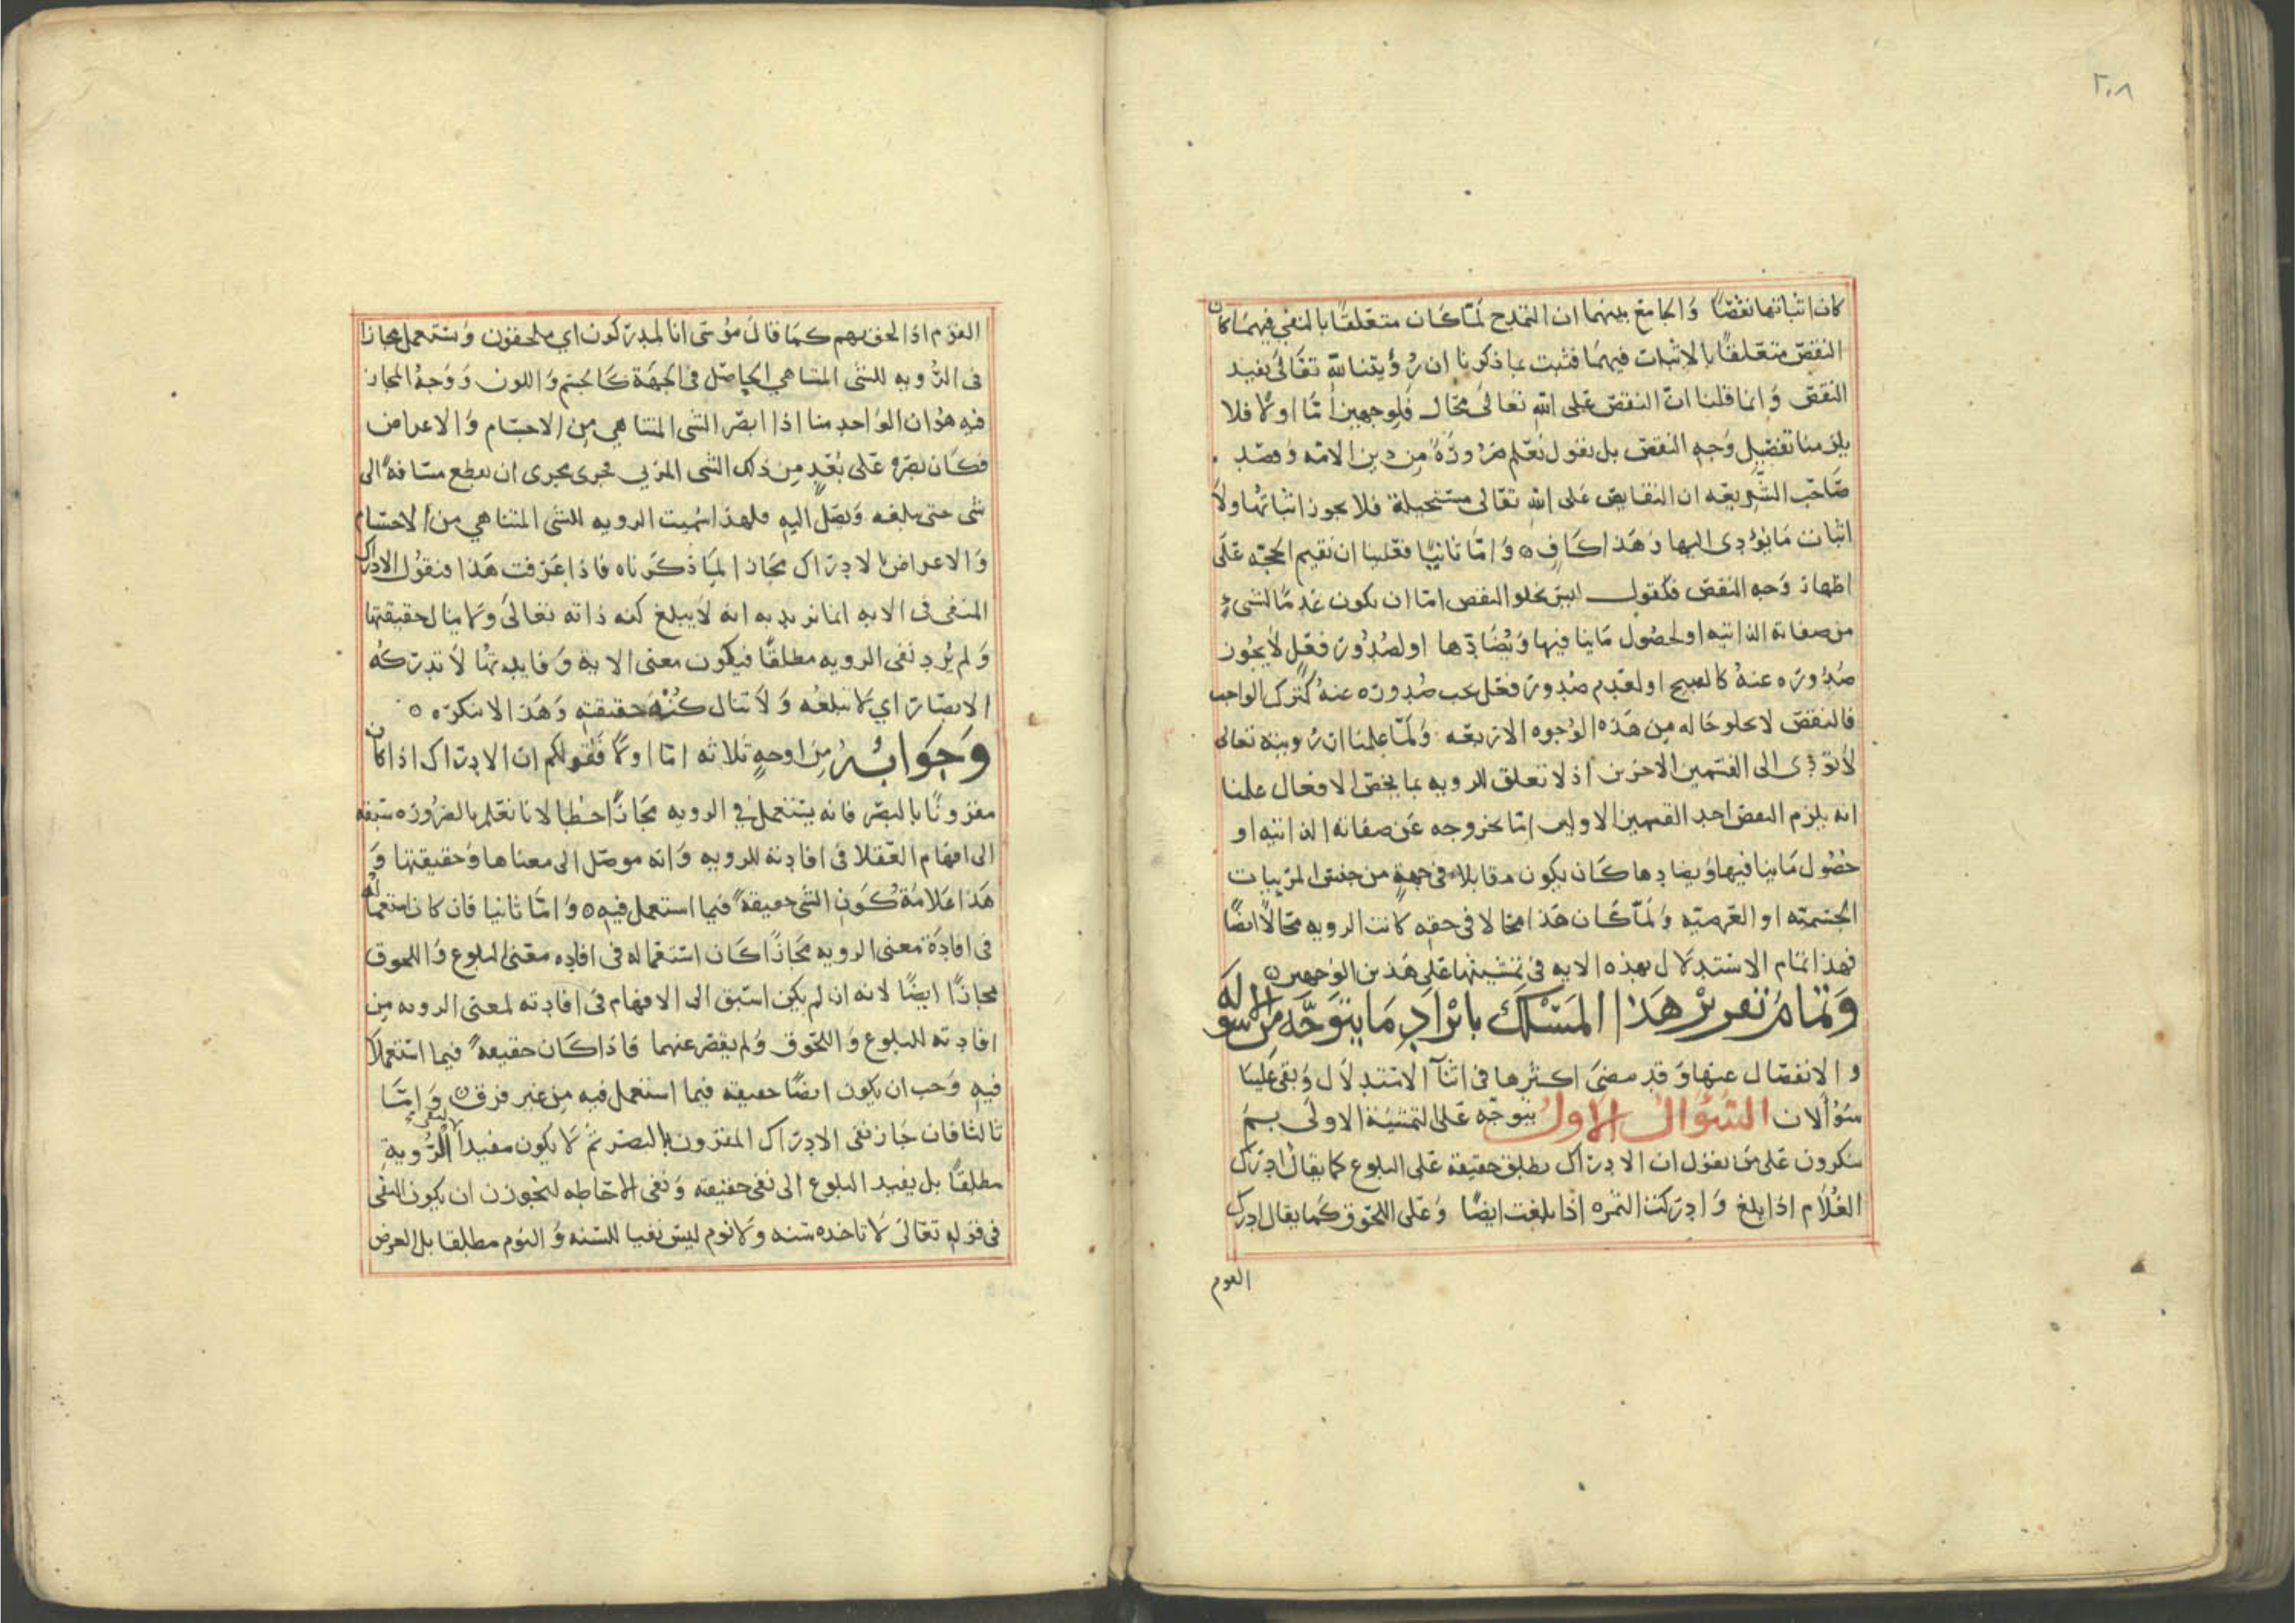 ٢٠٨
كان اثباتها نقصًا وَالجامع بينهما ان التمدح لمّا كان متعلقًا بالنفي فيهما كان
النقص متعلقًا بالاثبات فيهما فثبت بما ذكرنا ان رؤيتنا لله تعالى يفيد
النقص وَانما قلنا انّ النقص على الله تعالى محال فلوجهين امّا اولا فلا
يلزمنا تفصيل وجه النقص بل نقول نعلم ضرورةً من دين الامه وقصد
صَاحب الشريعه ان النقايص على الله تعالى مستحيلة فلا يجوز اثباتها ولا
اثبات مَا يؤدي اليها وَهَذا كافٍ ٥ وَامّا ثانيًا فعلينا ان نقيم الحجه على
اظهار وَجه النقص فنقول ليس يخلو النقص امّا ان يكون عدمًا لشيء
من صفاته الذاتيه او لحصول مَا ينافيها وَيُضَادّها او لصُدُور فعل لا يجوز
صُدُوره عنهُ كالقبيح او لعدم صدور فعل يجب صُدوره عنهُ كترك الواجب
فالنقص لا يخلو حاله من هَذه الوُجوه الاربعه وَلمّا علمنا ان رويته تعالى
لا تؤدّي الى القسمين الاخرين اذ لا تعلق للرويه بما يخص الافعال علمنا
انه يلزم النقص احد القسمين الاولين امّا بخروجه عَن صفاته الذاتيه او
حُصُول مَا ينافيها وَيضادها كان يكون مقابلا في جهةٍ من جنس المرييات
الجسميّه او العَرضيّه وَلمّا كَان هَذا محَالا في حقه كانت الرويه محالاً ايضًا
فهذا تمام الاستدلال بهذه الايه في تمشيتها على هَذين الوَجهين ٥
وَتمَامُ تقرير هَذا المَسْلَك بايْرادِ مَا يتوَجّه من الاسوله
والانفصال عنها وَقد مضىَ اكثرها في اثنآ الاستدلال وَبقي عَلينا
سُؤالان السُؤال الاول يتوجّه عَلى التمشيَة الاولى بم
تنكرون عَلى مَن يقول ان الادراك يطلق حقيقة عَلى البلوغ كما يقال ادرك
الغُلام اذا بلغ وَادركت الثمره اذا بلغت ايضًا وَعَلى اللحوق كمَا يقال ادرك
القوم
القوم اذا لحق بهم كمَا قالَ مُوسَى انا لمدركون اي ملحقون وَيستعمل مجازا
في الرُّويه للشى المتناهي الحاصل في الجهَة كالجسم وَاللون وَوَجهُ المجاز
فيه هُو ان الوَاحد منا اذا ابصَر الشى المتناهي من الاجسَام وَالاعراض
فكَان بصره عَلى بُعْدٍ من ذلك الشى المرئي فجرى مجرى ان يقطع مسَافةً الى
شى حتى يبلغه وَيصَل اليه فلهذا سُميت الرويه للشى المتناهي من الاجسَام
وَالاعراض الادراك مجَازا لمَا ذكرناه فاذا عَرفت هَذا فنقُول الادراك
المنفى في الايه انما نريد به انه لا يبلغ كنه ذاته تعالىَ وَلا ينال حقيقتها
وَلم يُرِد نفي الرويه مطلقًا فيكون معنى الاية وَفايدتُها لا تدركه
الابصَار اي لا تبلغه وَلا تنال كُنْه حقيقته وَهَذا لا ننكره ٥
وَجَوابُهُ من اوجهٍ ثلاثه امّا اولا فقولكم ان الادرَاك اذا كان
مقرونًا بالبصَر فانه يستعمل في الرويه مجَازًا خطا لانا نعَلم بالضرُوره سَبقه
الى افهام العُقلا في افادته للرويه وَانه موصل الى معناها وَحقيقتها وَ
هَذا عَلامَةُ كَون الشى حقيقةً فيما استعمل فيه ٥ وَامّا ثانيا فان كان استعماله
في افادَة معنى الرويه مجَازًا كَان استعماله في افاده معنى البلوغ وَاللحوق
مجَازًا ايضًا لانه ان لم يكن اسَبق الى الافهام في افادته لمعنى الرويه من
افادته للبلوغ وَاللحُوق وَلم يقصُر عنهما فاذا كَان حقيقةً فيما استعملا
فيه وَجب ان يكون ايضًا حقيقه فيما استعمل فيه من غير فرق ٥ وَامَّا
ثالثا فان جَاز نفى الادراك المقرون بالبصر ثم لا يكون مفيدًا لنفي الرُّويةِ
مطلقًا بل يفيد البلوغ الى نفى حقيقه وَنفى الاحَاطه لنجوزن ان يكون النفى
في قوله تعَالىَ لا تاخذه سَنه وَلا نوم ليسَ نفيا للسّنه وَالنوم مطلقا بل الغرض